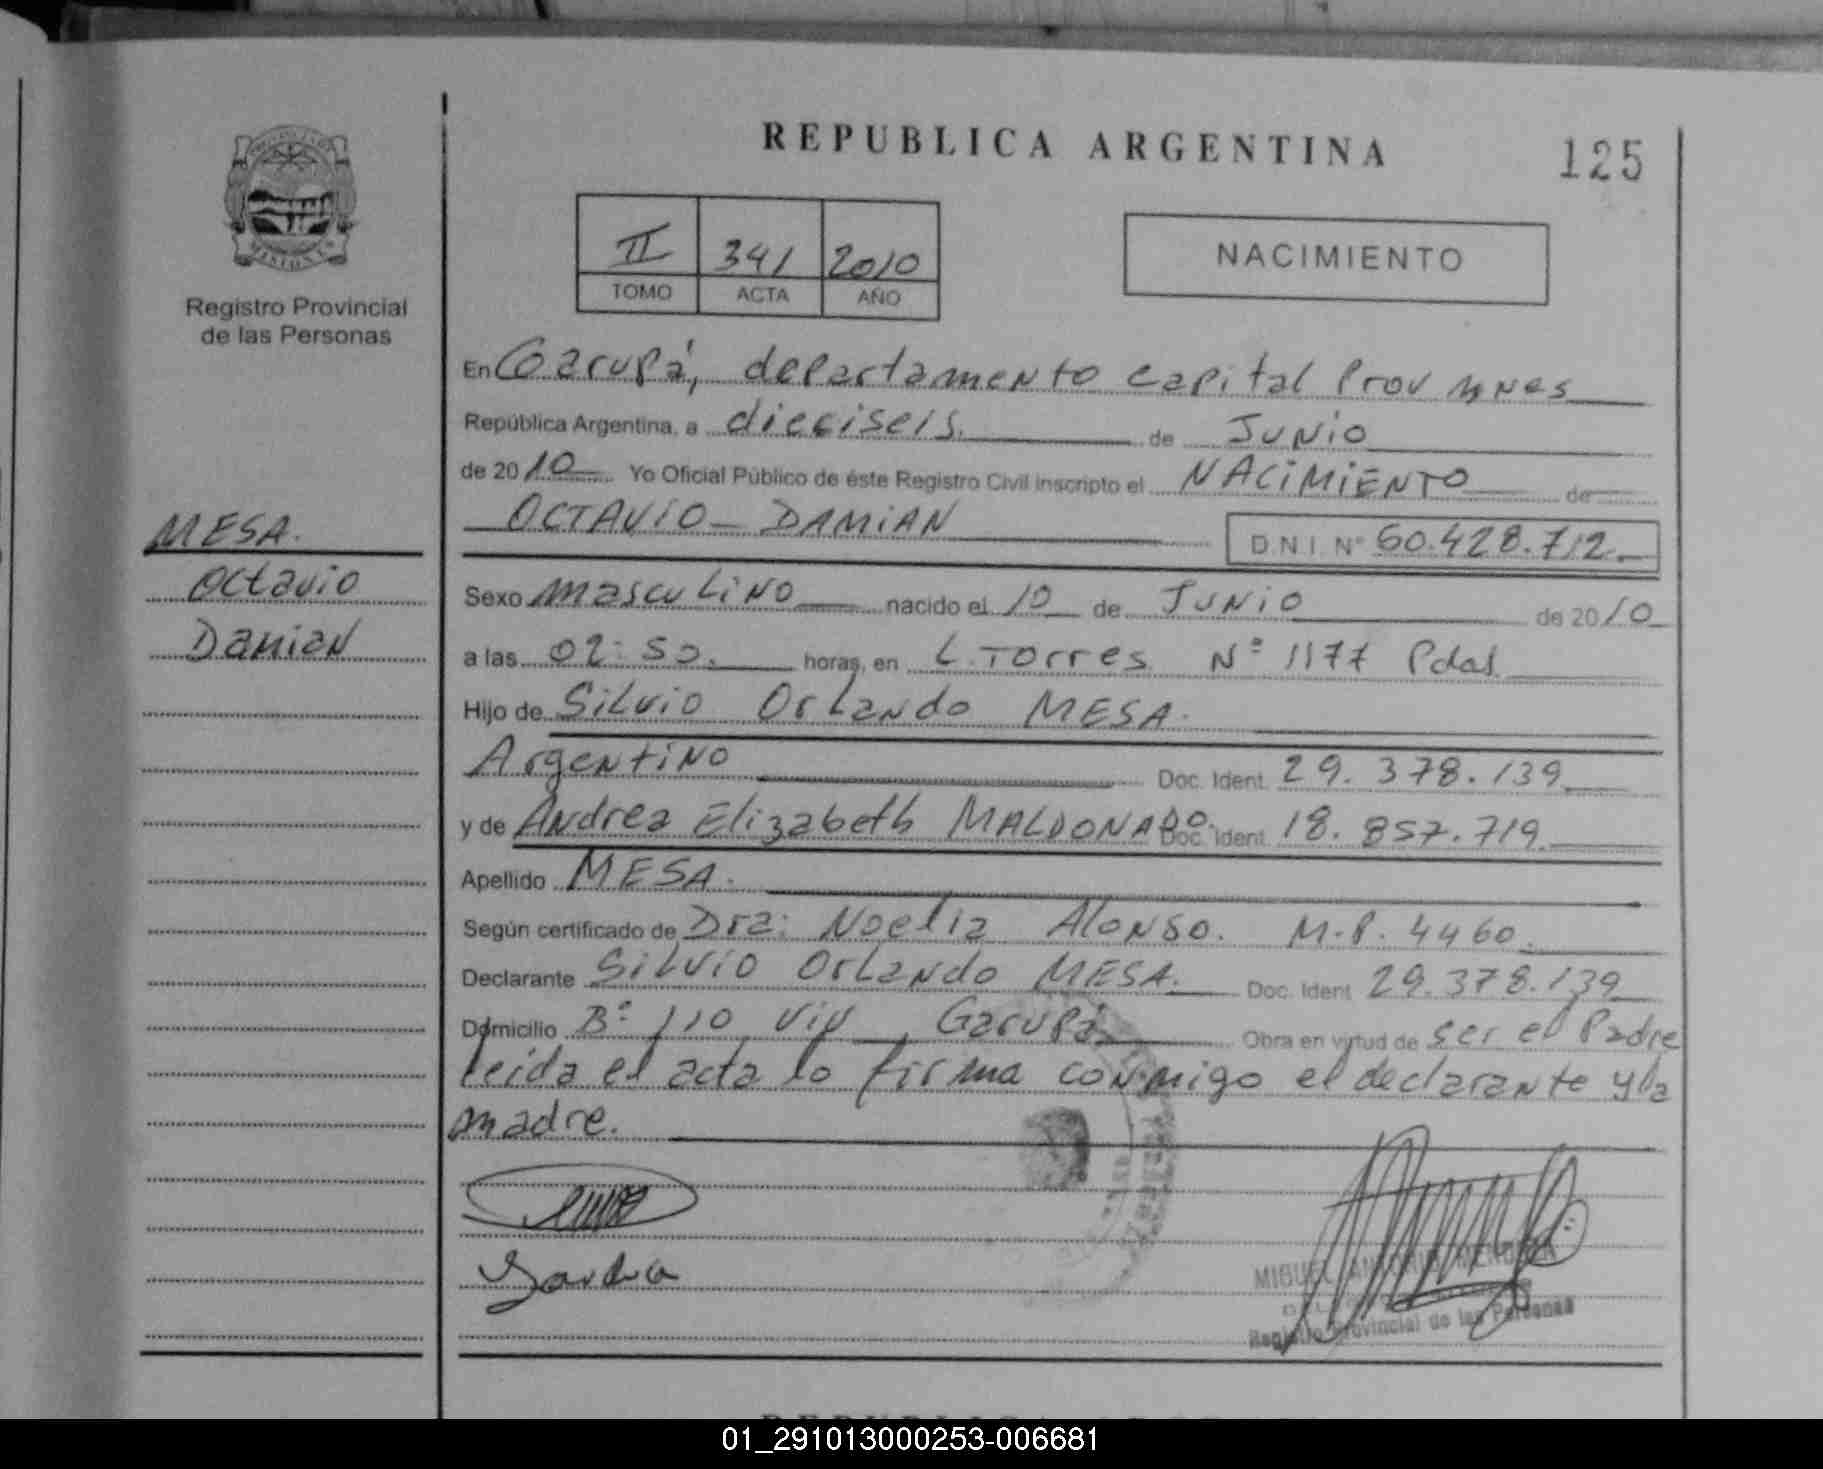 REPUBLICA ARGENTINA
125
II 341 2010
TOMO ACTA AÑO
NACIMIENTO
Registro Provincial
de las Personas
MESA.
Octavio
Damian
En Garupá, departamento capital Prov mnes
República Argentina, a dieciseis. de Junio
de 2010 Yo Oficial Público de éste Registro Civil inscripto el NACIMIENTO de
OCTAVIO DAMIAN
D.N.I. Nº 50.428.712
Sexo masculino nacido el 10 de Junio de 2010
a las 02:50. horas, en L. Torres Nº 1177 Pdas.
Hijo de Silvio Orlando MESA.
Argentino Doc. Ident. 29.378.139
y de Andrea Elizabeth MALDONADO. Doc. Ident. 18.857.719
Apellido MESA.
Según certificado de Dra: Noelia Alonso. M.P. 4460.
Declarante Silvio Orlando MESA. Doc. Ident 29.378.139
Domicilio Bº 110 Viv Garupá Obra en virtud de ser el Padre
leida el acta lo firma conmigo el declarante y la
madre.
MIGUEL ANTONIO
Registro Provincial de las Personas
01_291013000253-006681